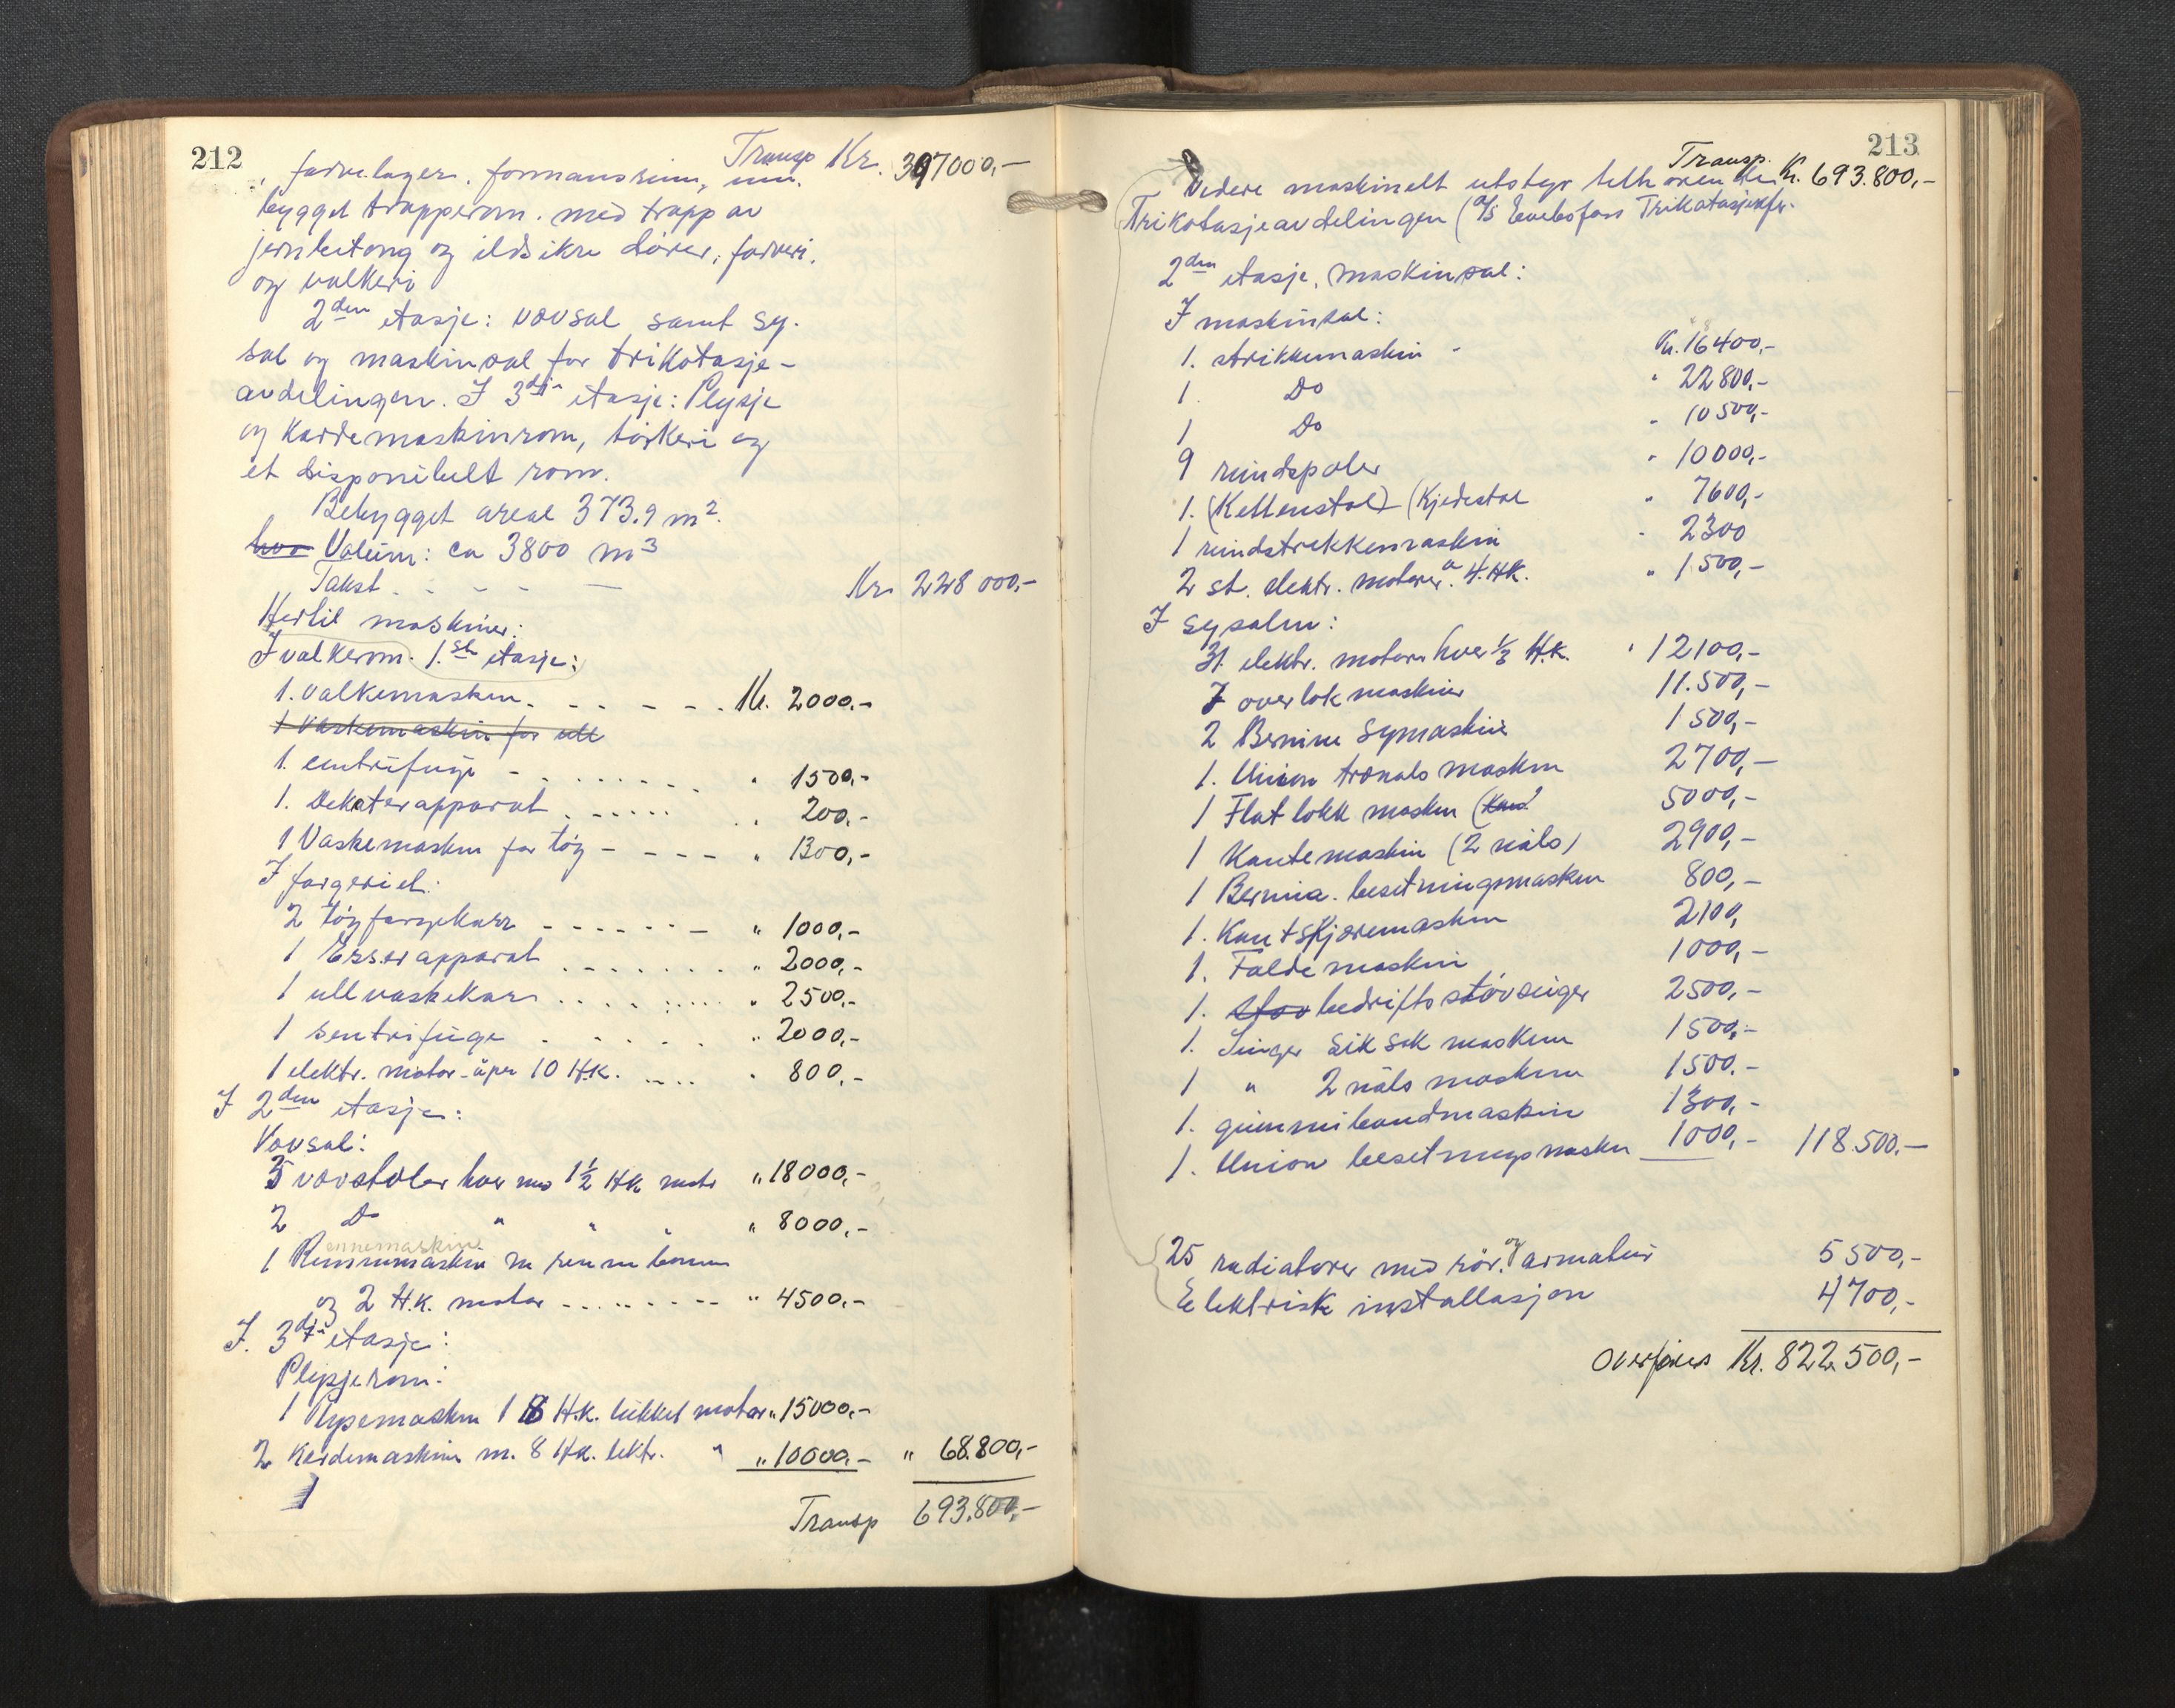 212
Transp Kr. 397000,-
farvelager, formannsrum, inn-
bygget trapperom. med trapp av
jernbetong og ildsikre dörer, farveri.
og valkeri
2den etasje: vævsal samt sy-
sal og maskinsal for trikotasje-
avdelingen. I 3dje etasje: Plysje
og Kardemaskinrom, törkeri og
et disponibelt rom.
Bebygget areal 373.9 m2.
hvo Volum: ca 3800 m3
Takst . - - - Kr. 228 000,-
Hertil maskiner:
I valkerom. 1.ste etasje:
1. valkemaskin. - - - - - Kr. 2000.-
1 Vaskemaskin for ull
1. centrifuge - . . . . . " 1500,-
1. Dekaterapparat . - - - - " 200.-
1 Vaskemaskin for töy - - - - " 1300,-
I fargeriet:
2 töyfargekarr - - - - - - " 1000,-
1 Esserapparat . - - - - - " 2000,-
1 ullvaskekarr . . . . . . " 2500,-
1 sentrifuge . . . . . " 2000,-
1 elektr. motor - åpen 10 H.K. . - . . " 800,-
I 2den etasje:
Vævsal:
5 vævstoler hver med 1 1/2 HK motor " 18000,-
2 Do " " " " 8000,-
ennemaskin
1 Rennemaskin m rennebom
og 2 H.K. motor - - - - - - - " 4500.-
I. 3dje etasje:
Plysjerom:
1 Rysemaskin 1 8 H.K. lukket motor " 15000.-
2 Kardemaskiner m. 8 HK. lektr. " " 10000.- " 68.800,-
1
Transp 693.800,-
213
Transp. Kr. 693.800,-
Videre maskinelt utstyr
Trikotasjeavdelingen (A/S Evebofoss Trikotasjefbr.
2den etasje, maskinsal:
I maskinsal:
1. strikkemaskin - Kr. 16400,-
1. Do " 22800,-
1 Do " 10500,-
9 rundspoler " 10000,-
1. (Kettenstol) (Kjedestol " 7600,-
1 rundstrikkemaskin " 2300
2 st. elektr. motorer a 4. HK. " 1500,-
I sysalen:
31. elektr. motorer hver 1/3 H.K. " 12100,-
7 overlok maskiner 11.500,-
2 Bernina Symaskiner 1500,-
1. Union trænåls maskin 2700,-
1 Flat lokk maskin (Kan 5000,-
1 Kantemaskin (2 nåls) 2900,-
1 Bernina. besetningsmaskin 800,-
1. Kantskjæremaskin 2100,
1. Faldemaskin 1000,-
1. Stöv bedriftsstövsuger 2500,-
1. Singer sik sak maskin 1500,-
1 " 2 nåls maskin 1500.-
1. gummibandmaskin 1300,-
1. Union besetningsmaskin 1000,- 118.500.-
25 radiatorer med rör. og armatur 5500,-
Elektrisk installasjon 4700,-
Overföres Kr. 822.500,-